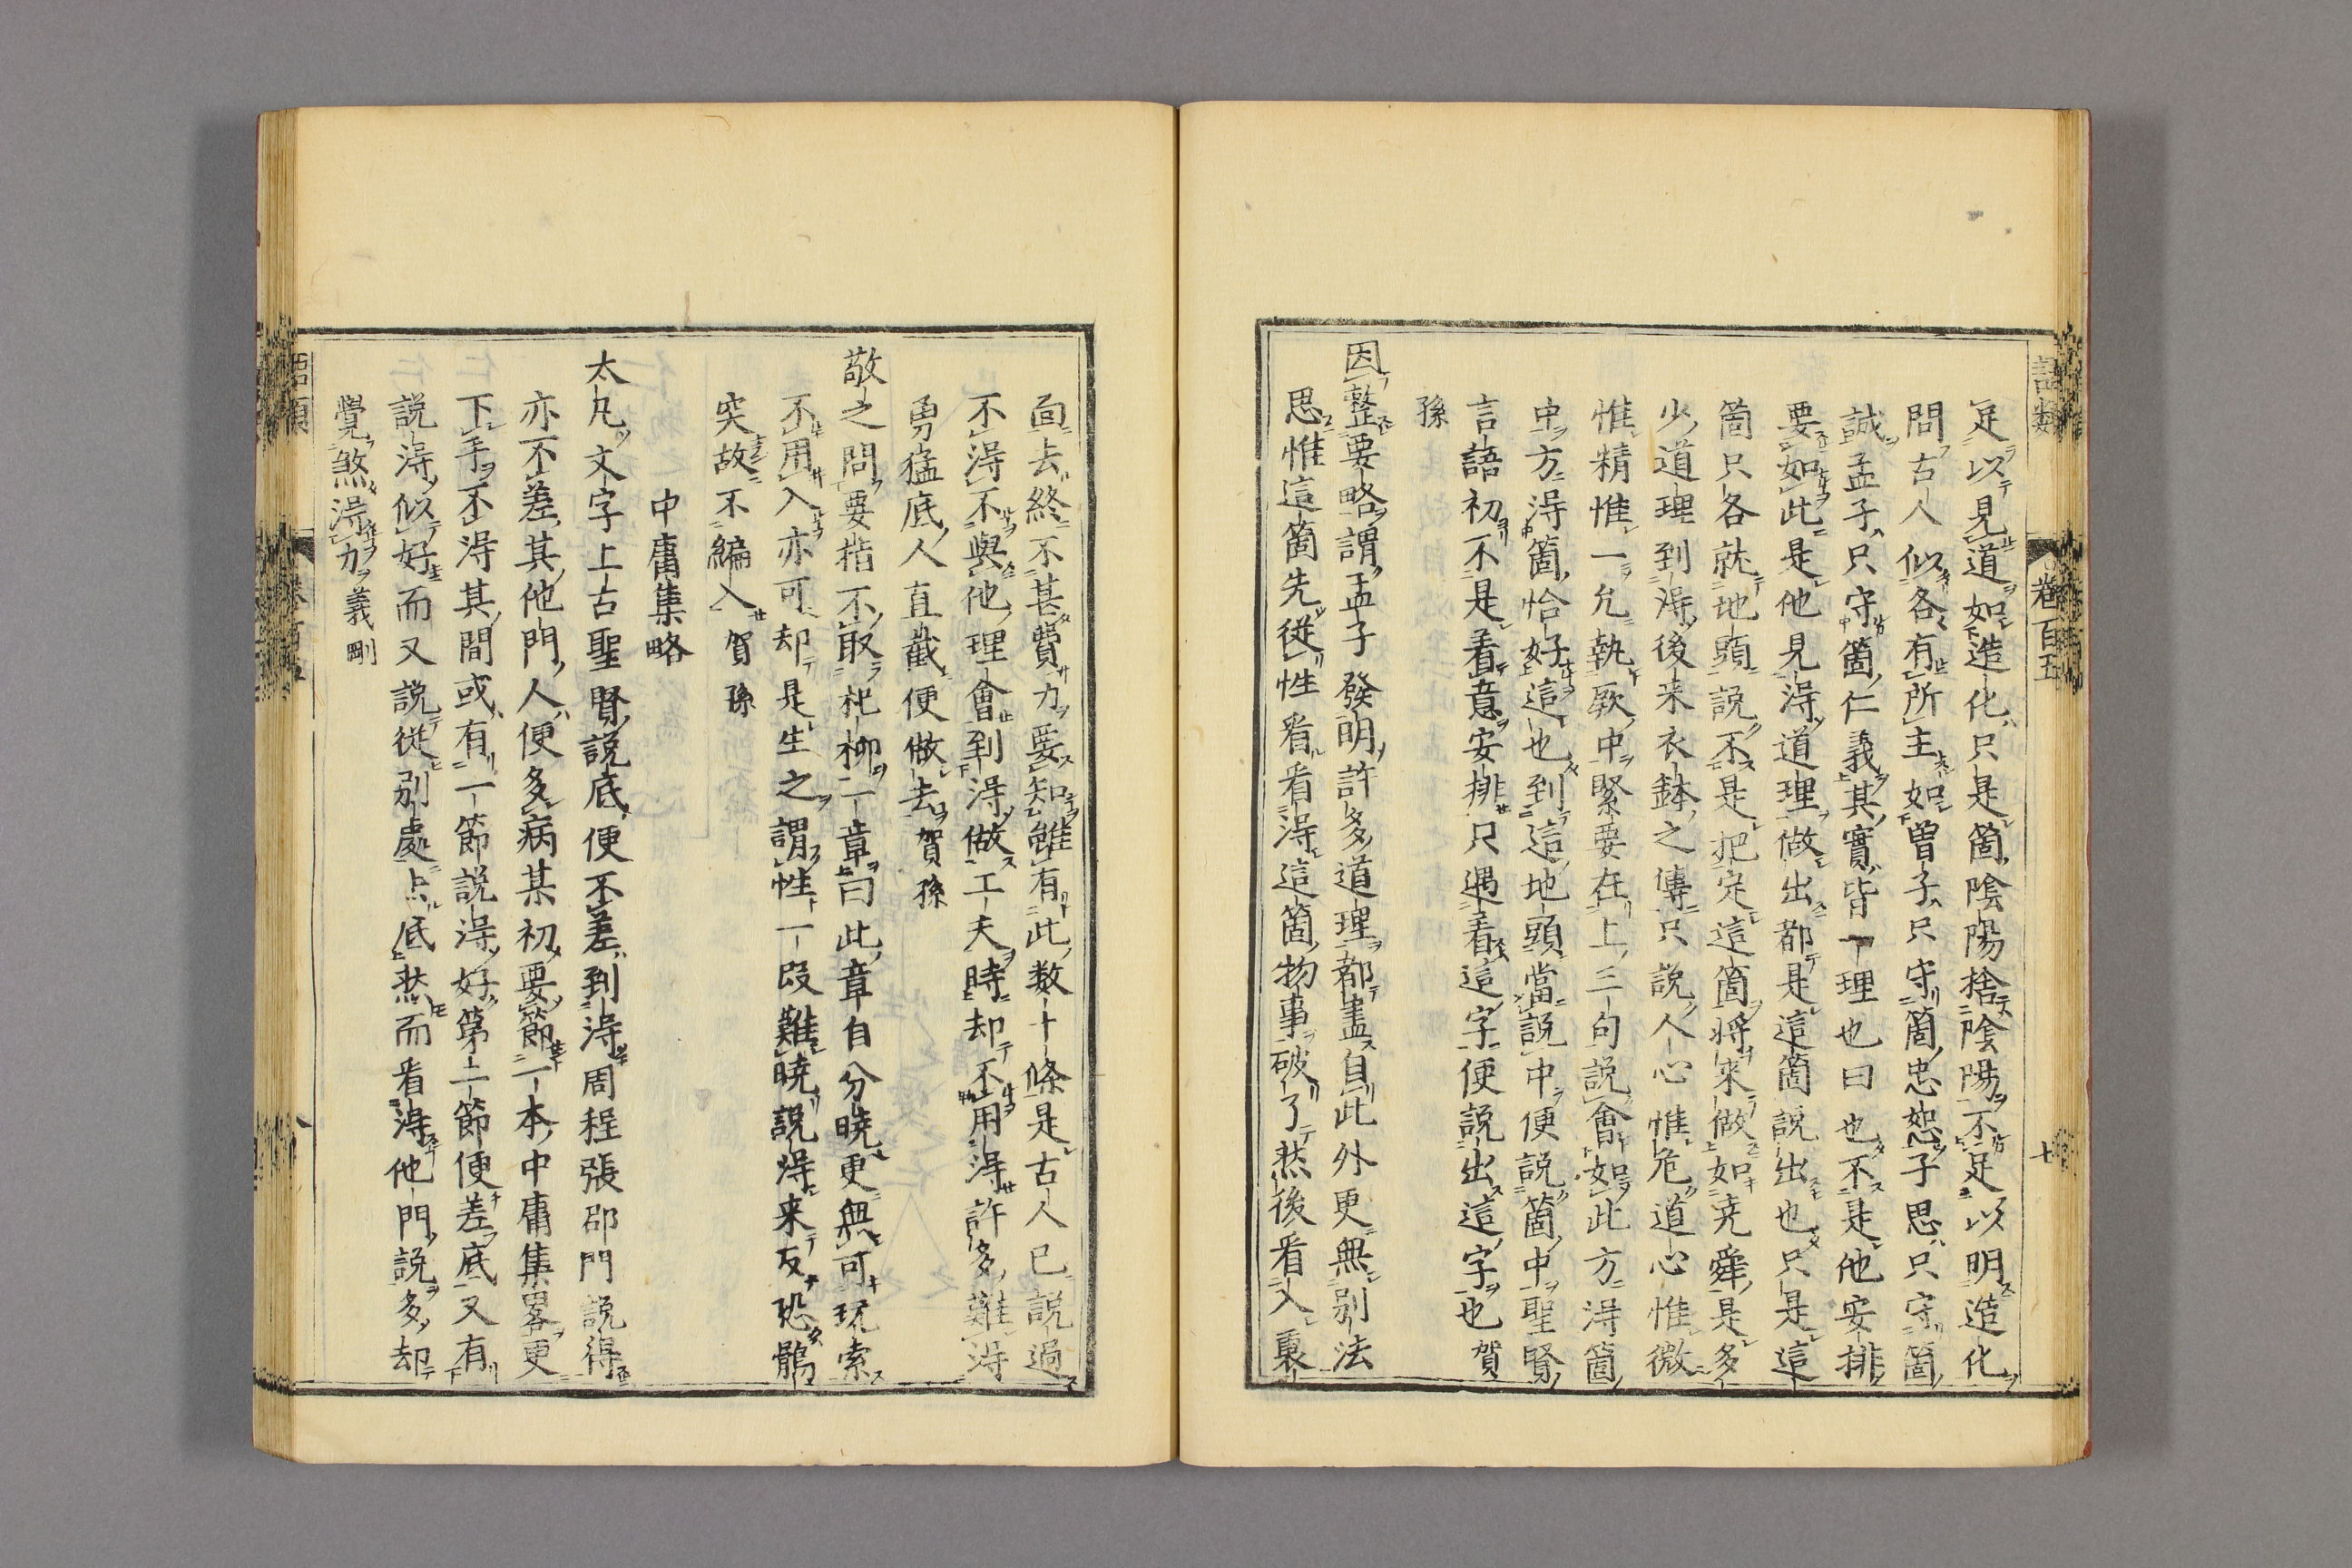 語類 卷百五 七
足以見道如造化只是箇陰陽捨陰陽不足以明造化
問古人似各有所主如曽子只守箇忠恕子思只守箇
誠孟子只守箇仁義其實皆一理也曰也不是他安排
要如此是他見淂道理做出都是這箇說出也只是這
箇只各就地頭說不是把定這箇將来做如尭舜是多
少道理到淂後来衣鉢之傳只說人心惟危道心惟微
惟精惟一允執厥中緊要在上三句說會如此方淂箇
中方淂箇恰好這也到這地頭當說中便說箇中聖賢
言語初不是着意安排只遇着這字便說出這字也賀
孫
因整要略謂孟子發明許多道理都盡自此外更無別法
思惟這箇先從性看看淂這箇物事破了然後看入裏
面去終不甚費力要知雖有此数十條是古人已說過
不淂不與他理會到淂做工夫時却不用淂許多難淂
勇猛底人直截便做去賀孫
敬之問要指不取杞柳一章曰此章自分曉更無可玩索
不用入亦可却是生之謂性一段難曉說淂来反恐鶻
突故不編入賀孫
中庸集略
太凡文字上古聖賢說底便不差到淂周程張邵門說得
亦不差其他門人便多病某初要節一本中庸集畧更
下手不淂其間或有一節說淂好第二節便差底又有
說淂似好而又說從別處去底然而看淂他門說多却
覺煞淂力義剛
語類